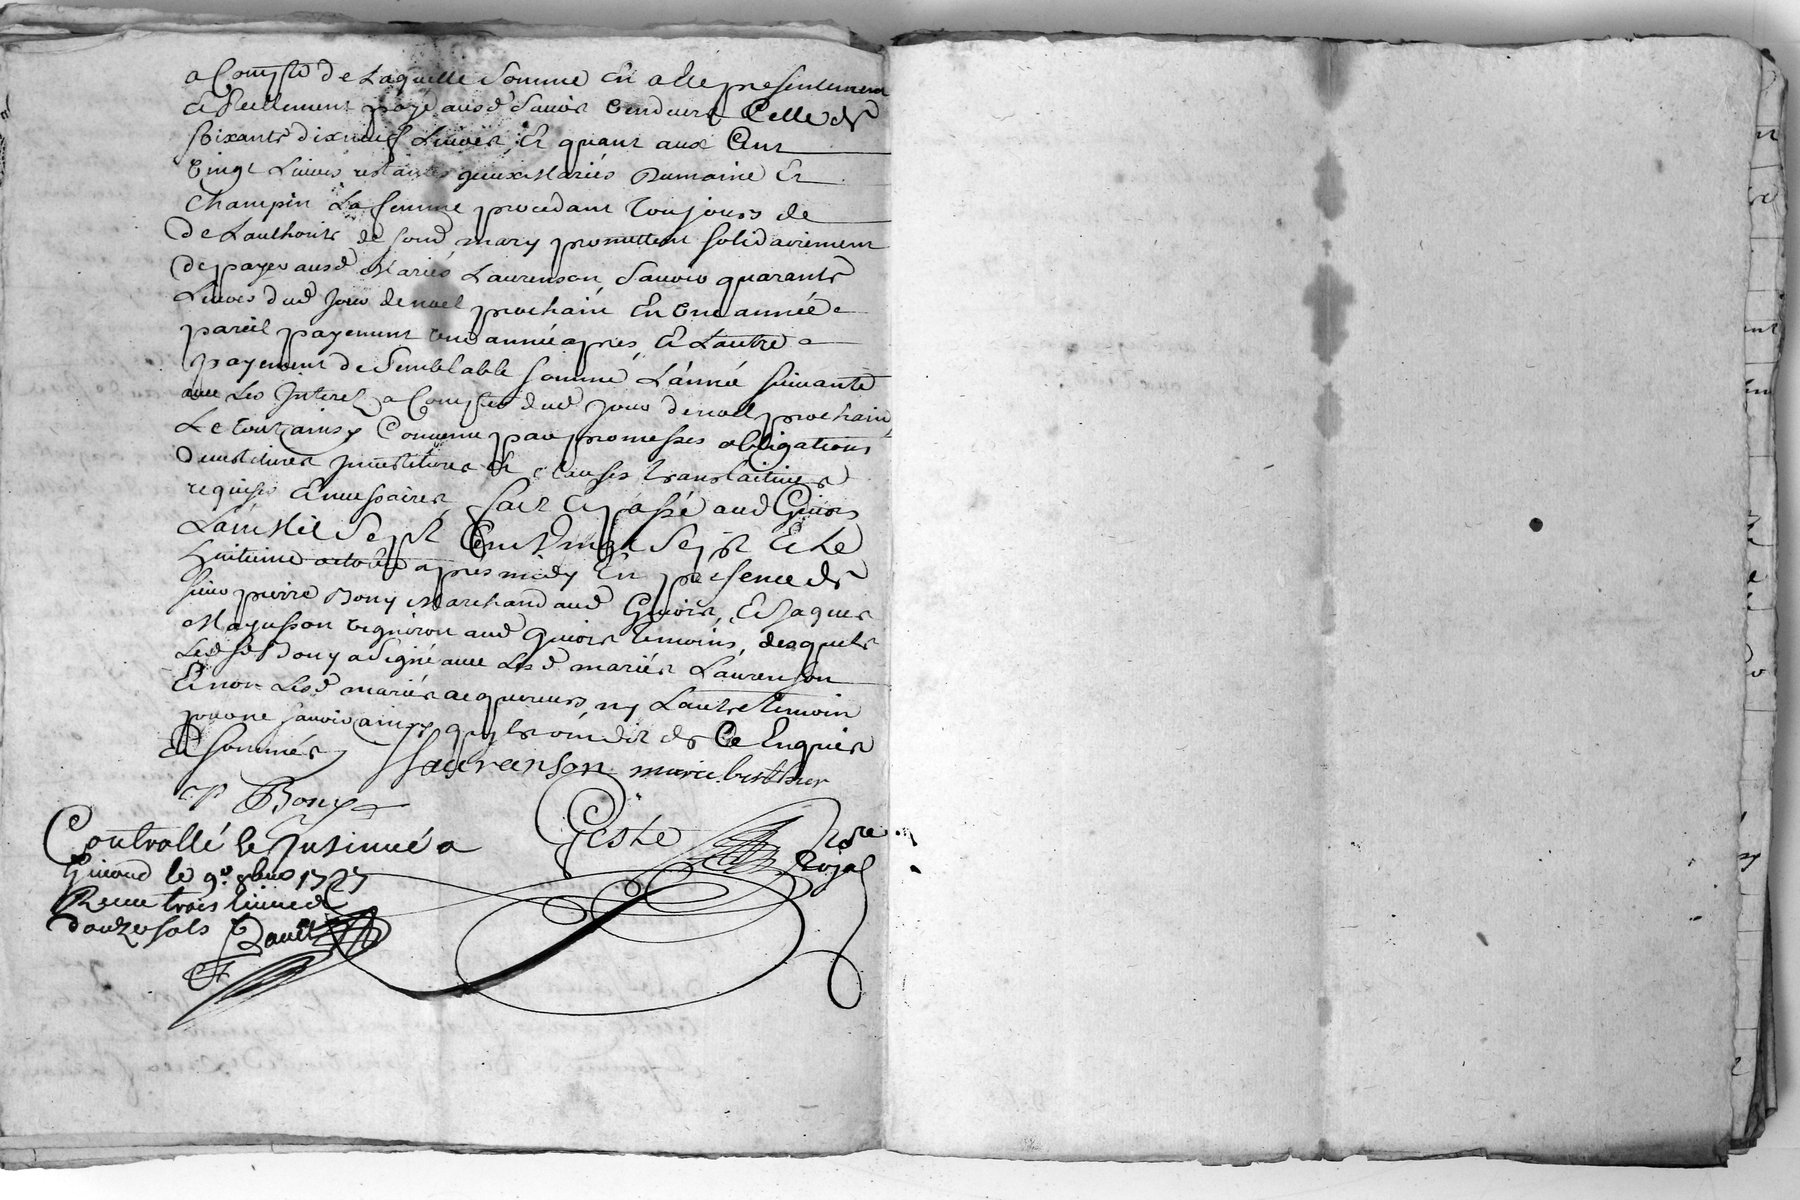 a Compte de Laquelle Somme En a Ete presentement
Et Reellement payé ausd. Savoir vendeurs Celle de
Soixante dix neuf Livres, Et quant aux Cent
vingt Livres restantes yceux Mariés Dumaine Et
Champin La femme procedant Toujours de
De Lauthorite de sond mary promettent solidairement
De payer ausd Mariés Laurenson, Savoir quarante
Livres dud Jour de noel prochain En une année a
pareil payement une année apres, Et L'autre a
payement de Semblable somme, L'année suivante
avec Les Interets a Compter dud Jour de noel prochain
Le tout ainsy Convenu par promesses obligations
Devestitures Jnvestitures Et Clauses translatives
requises Et necessaires fait Et passé aud Givors
L'an Mil Sept Cent Vingt Sept Et Le
huitieme octobre apres midy En presence de
sieur pierre Bony Marchand aud Givors, Et Jaques
Mayusson vigneron aud Givors Temoins, desquels
Led Sr Bony a Signé avec Lesd mariés Laurenson
Et non Lesd mariés acquereurs, ny L'autre temoin
pour ne savoir ainsy qu'ils ont dit de Ce Enquis
Et sommés
Laurenson marie berthier
P Bony
Geste Nore
Royal
Controllé Et Insinué a
Givord le 9e 1727
Receu trois livres
douze sols